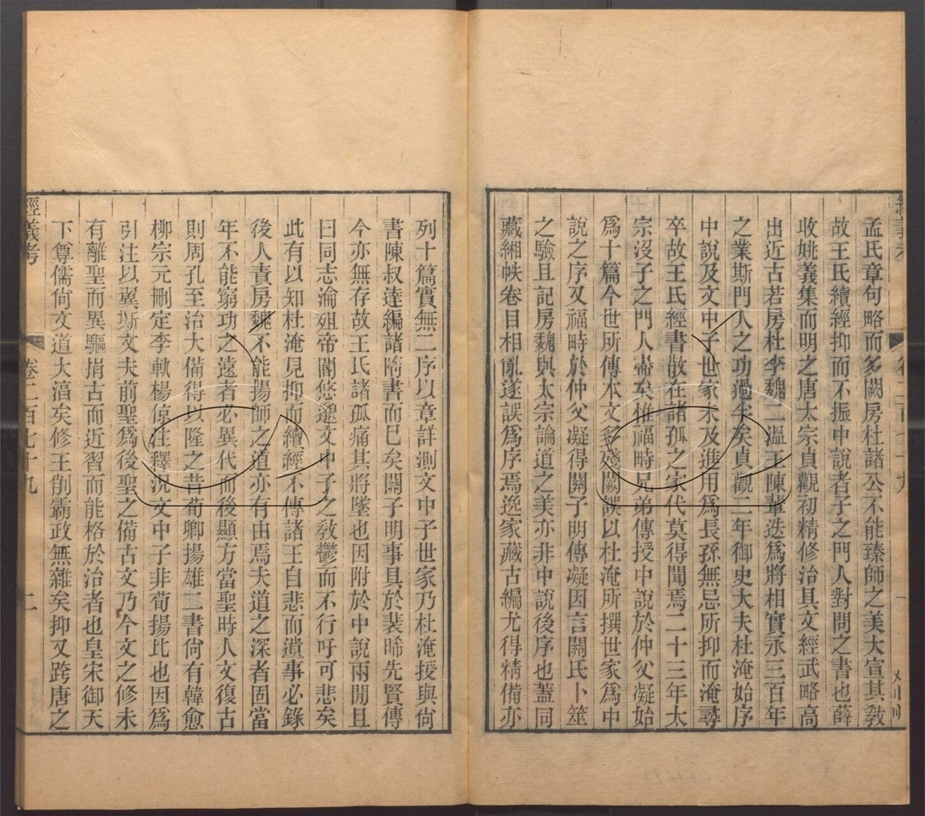 孟氏章句略而多闕房杜諸公不能臻師之美大宣其敎
故王氏續經抑而不振中說者子之門人對問之書也薛
收姚義集而明之唐太宗貞觀初精修治具文經武略高
出近古若房杜李魏二溫王陳輩迭爲將相實永三百年
之業斯門人之功過半矣貞觀二年御史大夫杜淹始序
中說及文中子世家未及進用爲長孫無忌所抑而淹尋
卒故王氏經書散在諸孤之家代莫得聞焉二十三年太
宗沒子之門人盡矣惟福畤兄弟傳授中說於仲父凝始
爲十篇今世所傳本文多殘闕誤以杜淹所撰世家爲中
說之序又福畤於仲父凝得關子明傳凝因言關氏卜筮
之驗且記房魏與太宗論道之美亦非中說後序也蓋同
藏緗帙卷目相亂遂誤爲序焉逸家藏古編尤得精備亦
列十篇實無二序以章詳測文中子世家乃杜淹授與尙
書陳叔達編諸隋書而巳矣關子明事具於裴晞先賢傳
今亦無存故王氏諸孤痛其將墜也因附於中說兩閒且
曰同志淪殂帝閽悠邈文中子之敎鬱而不行吁可悲矣
此有以知杜淹見抑而續經不傳諸王自悲而遺事必錄
後人責房魏不能揚師之道亦有由焉夫道之深者固當
年不能窮功之遠者必異代而後顯方當聖時人文復古
則周孔至治大備得以隆之昔荀卿揚雄二書尙有韓愈
柳宗元刪定李軌楊倞注釋況文中子非荀揚比也因爲
引注以翼斯文夫前聖爲後聖之備古文乃今文之修未
有離聖而異驅捐古而近習而能格於治者也皇宋御天
下尊儒尙文道大淯矣修王削霸政無雜矣抑又跨唐之
經義考
卷二百七十九
二